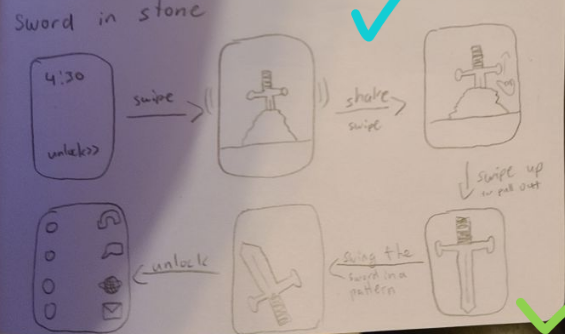 Sword in stone
4:30
unlock>>
swipe
shake
swipe
swipe up
or pull out
swing the
sword in a
pattern
unlock